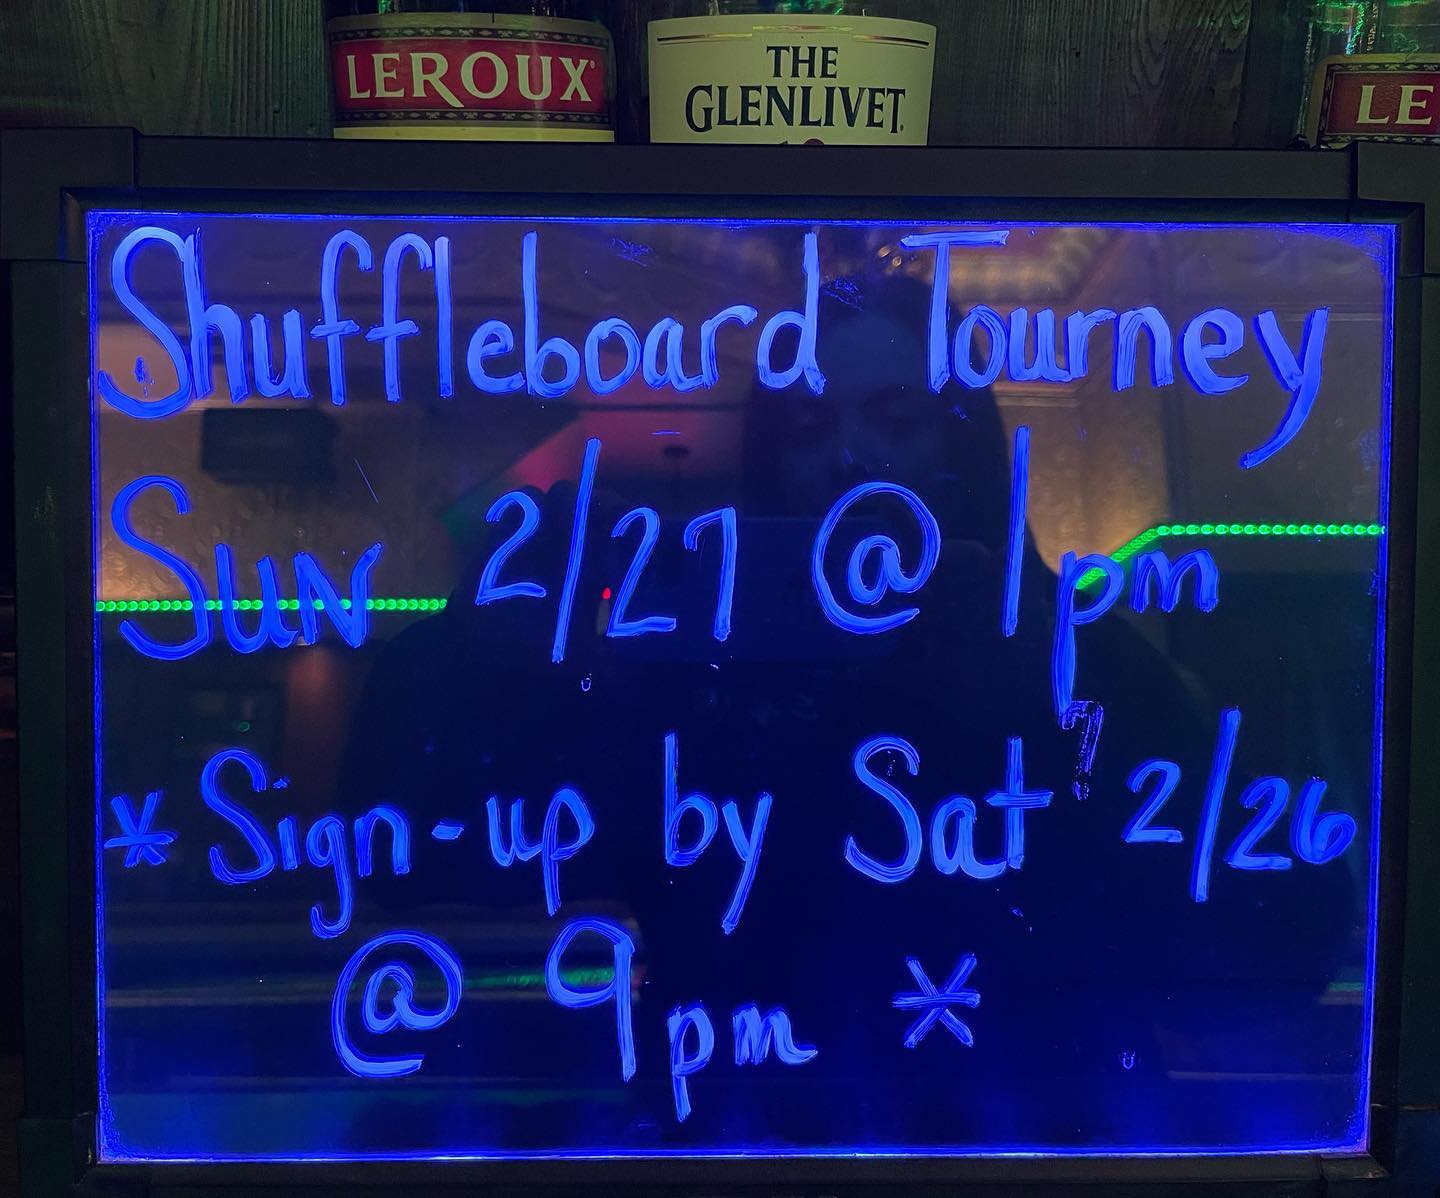 LEROUX
THE
GLENLIVET
LE
Shuffleboard Tourney
Sun 2/27 @ 1pm
* Sign-up by Sat 2/26
@ 9pm *